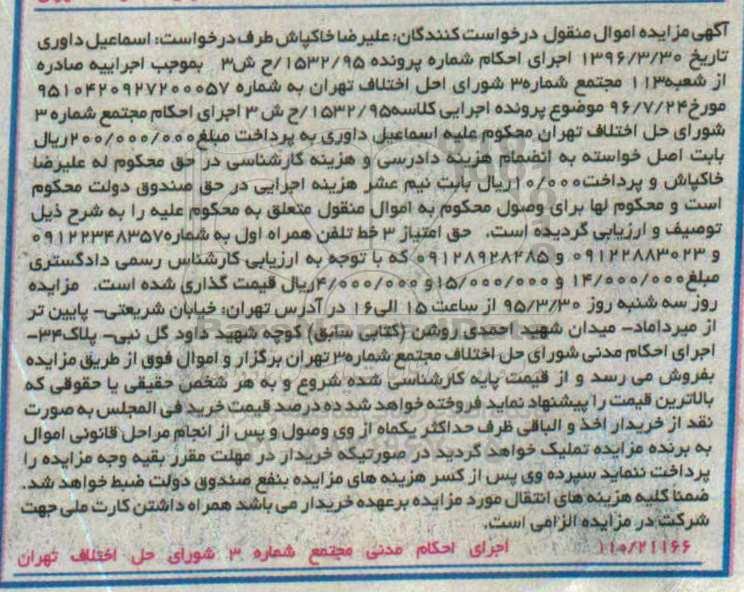 آگهی مزایده اموال منقول درخواست کنندگان: علیرضا خاکپاش طرف درخواست: اسماعیل داوری
تاریخ ۱۳۹۶/۳/۳۰ اجرای احکام شماره پرونده ۱۵۳۲/۹۵/ح ش۳ بموجب اجراییه صادره
از شعبه۱۱۳ مجتمع شماره۳ شورای احل اختلاف تهران به شماره ۹۵۱۰۴۲۰۹۲۷۲۰۰۰۵۷
مورخ۹۶/۷/۲۴ موضوع پرونده اجرایی کلاسه۱۵۳۲/۹۵/ح ش ۳ اجرای احکام مجتمع شماره ۳
شورای حل اختلاف تهران محکوم علیه اسماعیل داوری به پرداخت مبلغ۲۰۰/۰۰۰/۰۰۰ریال
بابت اصل خواسته به انضمام هزینه دادرسی و هزینه کارشناسی در حق محکوم له علیرضا
خاکپاش و پرداخت۱۰/۰۰۰ریال بابت نیم عشر هزینه اجرایی در حق صندوق دولت محکوم
است و محکوم لها برای وصول محکوم به اموال منقول متعلق به محکوم علیه را به شرح ذیل
توصیف و ارزیابی گردیده است. حق امتیاز ۳ خط تلفن همراه اول به شماره۰۹۱۲۲۳۴۸۳۵۷
و ۰۹۱۲۲۸۸۳۰۲۳ و ۰۹۱۲۸۹۲۸۲۸۵ که با توجه به ارزیابی کارشناس رسمی دادگستری
مبلغ۱۴/۰۰۰/۰۰۰ و ۱۵/۰۰۰/۰۰۰و ۴/۰۰۰/۰۰۰ریال قیمت گذاری شده است. مزایده
روز سه شنبه روز ۹۵/۳/۳۰ از ساعت ۱۵ الی۱۶ در آدرس تهران: خیابان شریعتی- پایین تر
از میرداماد- میدان شهید احمدی روشن (کتابی سابق) کوچه شهید داود گل نبی- پلاک۳۴-
اجرای احکام مدنی شورای حل اختلاف مجتمع شماره۳ تهران برگزار و اموال فوق از طریق مزایده
بفروش می رسد و از قیمت پایه کارشناسی شده شروع و به هر شخص حقیقی یا حقوقی که
بالاترین قیمت را پیشنهاد نماید فروخته خواهد شد ده درصد قیمت خرید فی المجلس به صورت
نقد از خریدار اخذ و الباقی ظرف حداکثر یکماه از وی وصول و پس از انجام مراحل قانونی اموال
به برنده مزایده تملیک خواهد گردید در صورتیکه خریدار در مهلت مقرر بقیه وجه مزایده را
پرداخت ننماید سپرده وی پس از کسر هزینه های مزایده بنفع صندوق دولت ضبط خواهد شد.
ضمنا کلیه هزینه های انتقال مورد مزایده برعهده خریدار می باشد همراه داشتن کارت ملی جهت
شرکت در مزایده الزامی است.
۱۱۰/۲۱۱۶۶ اجرای احکام مدنی مجتمع شماره ۳ شورای حل اختلاف تهران